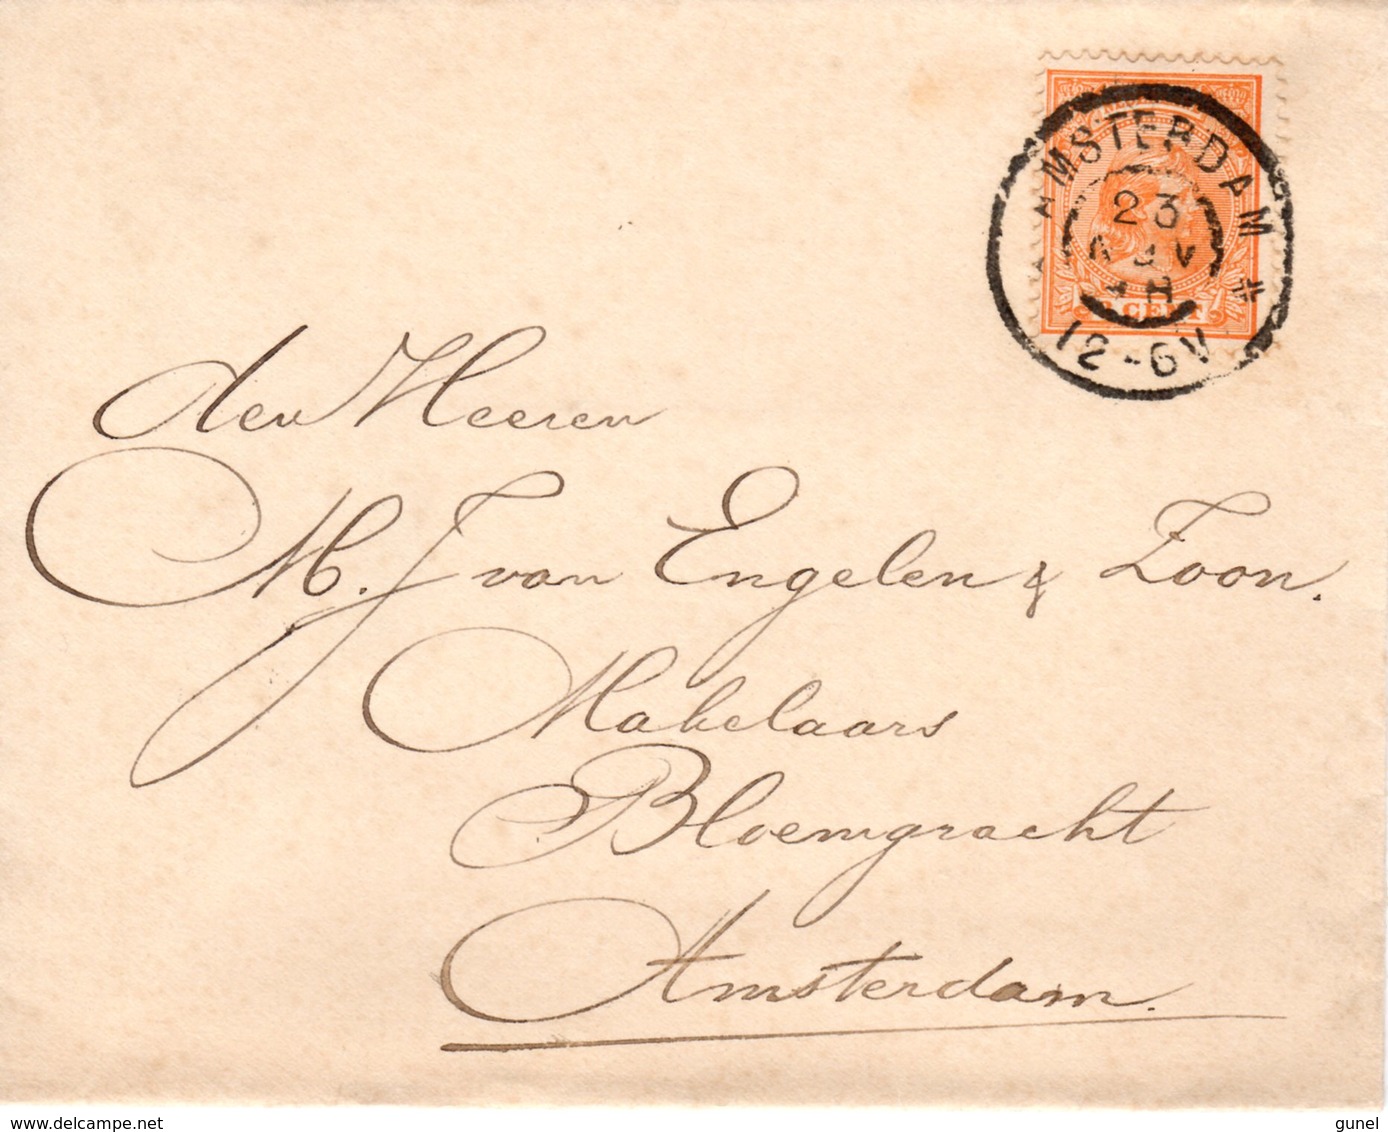 AMSTERDAM
23
12-6V
den Heeren
M. J van Engelen & Zoon.
Makelaars
Bloemgracht
Amsterdam.
www.delcampe.net
gunel